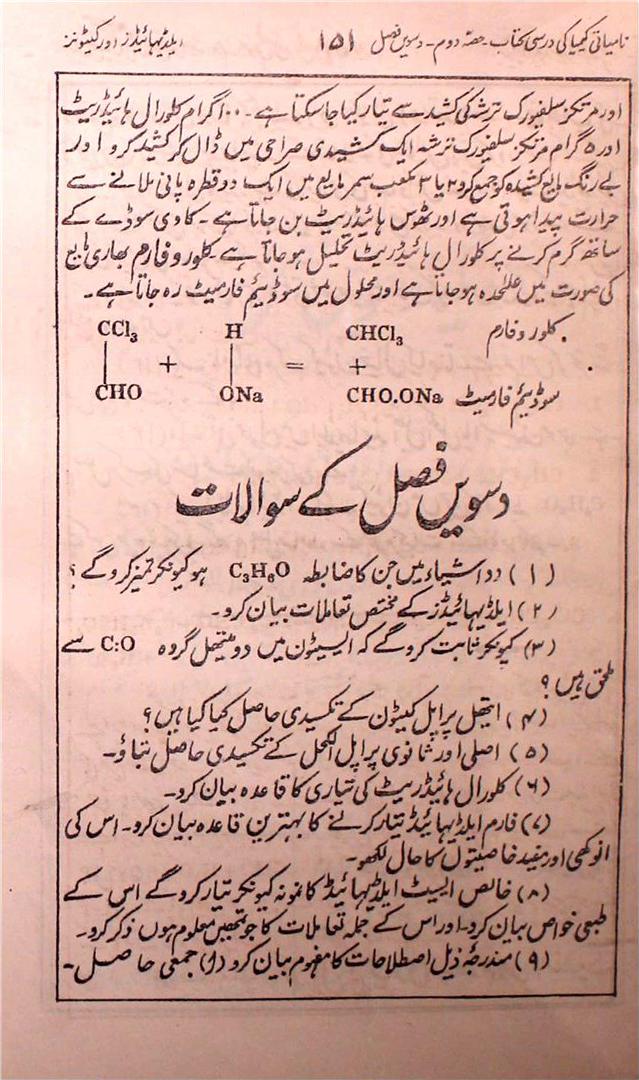 نامیاتی کیمیا کی درسی کتاب۔ حصہ دوم۔ دسویں فصل ۱۵۱ ایلڈیہائیڈز اور کیٹونز
اور مرتکز سلفیورک ترشہ کی کشید سے تیار کیا جاسکتا ہے۔ ۱۰۰ گرام کلورال ہائیڈریٹ
اور ۵ گرام مرتکز سلفیورک ترشہ ایک کشیدی صراحی میں ڈال کر کشید کرو اور
بے رنگ مایع کشیدہ کو جمع کرو ۲ یا ۳ مکعب سمر مایع میں ایک دو قطرہ پانی ملانے سے
حرارت پیدا ہوتی ہے اور ٹھوس ہائیڈریٹ بن جاتا ہے۔ کاوی سوڈے کے
ساتھ گرم کرنے پر کلورال ہائیڈریٹ تحلیل ہو جاتا ہے۔ کلوروفارم بھاری مایع
کی صورت میں علٰحدہ ہو جاتا ہے اور محلول میں سوڈیئم فارمیٹ رہ جاتا ہے۔
CCl₃ H CHCl₃ کلوروفارم
+ = +
CHO ONa CHO.ONa سوڈیئم فارمیٹ
دسویں فصل کے سوالات
(۱) دو اشیاء میں جن کا ضابطہ C₃H₆O ہو کیونکر تمیز کرو گے؟
(۲) ایلڈیہائیڈز کے مختص تعاملات بیان کرو۔
(۳) کیونکر ثابت کرو گے کہ ایسیٹون میں دو میتھل گروہ C:O سے
ملحق ہیں؟
(۴) ایتھل پراپل کیٹون کے تکسیدی حاصل کیا کیا ہیں؟
(۵) اصلی اور ثانوی پراپل الکحل کے تکسیدی حاصل بتاؤ۔
(۶) کلورال ہائیڈریٹ کی تیاری کا قاعدہ بیان کرو۔
(۷) فارم ایلڈیہائیڈ تیار کرنے کا بہترین قاعدہ بیان کرو۔ اس کی
انوکھی اور مفید خاصیتوں کا حال لکھو۔
(۸) خالص ایسیٹ ایلڈیہائیڈ کا نمونہ کیونکر تیار کرو گے اس کے
طبعی خواص بیان کرو۔ اور اس کے جملہ تعاملات کا جو تمھیں معلوم ہوں ذکر کرو۔
(۹) مندرجۂ ذیل اصطلاحات کا مفہوم بیان کرو (ا) جمعی حاصل۔